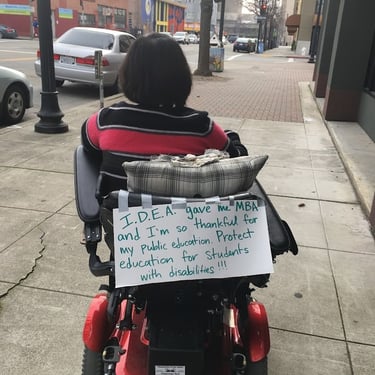 I.D.E.A. gave me MBA
and I'm so thankful for
my public education. Protect
education for students
with disabilities!!!